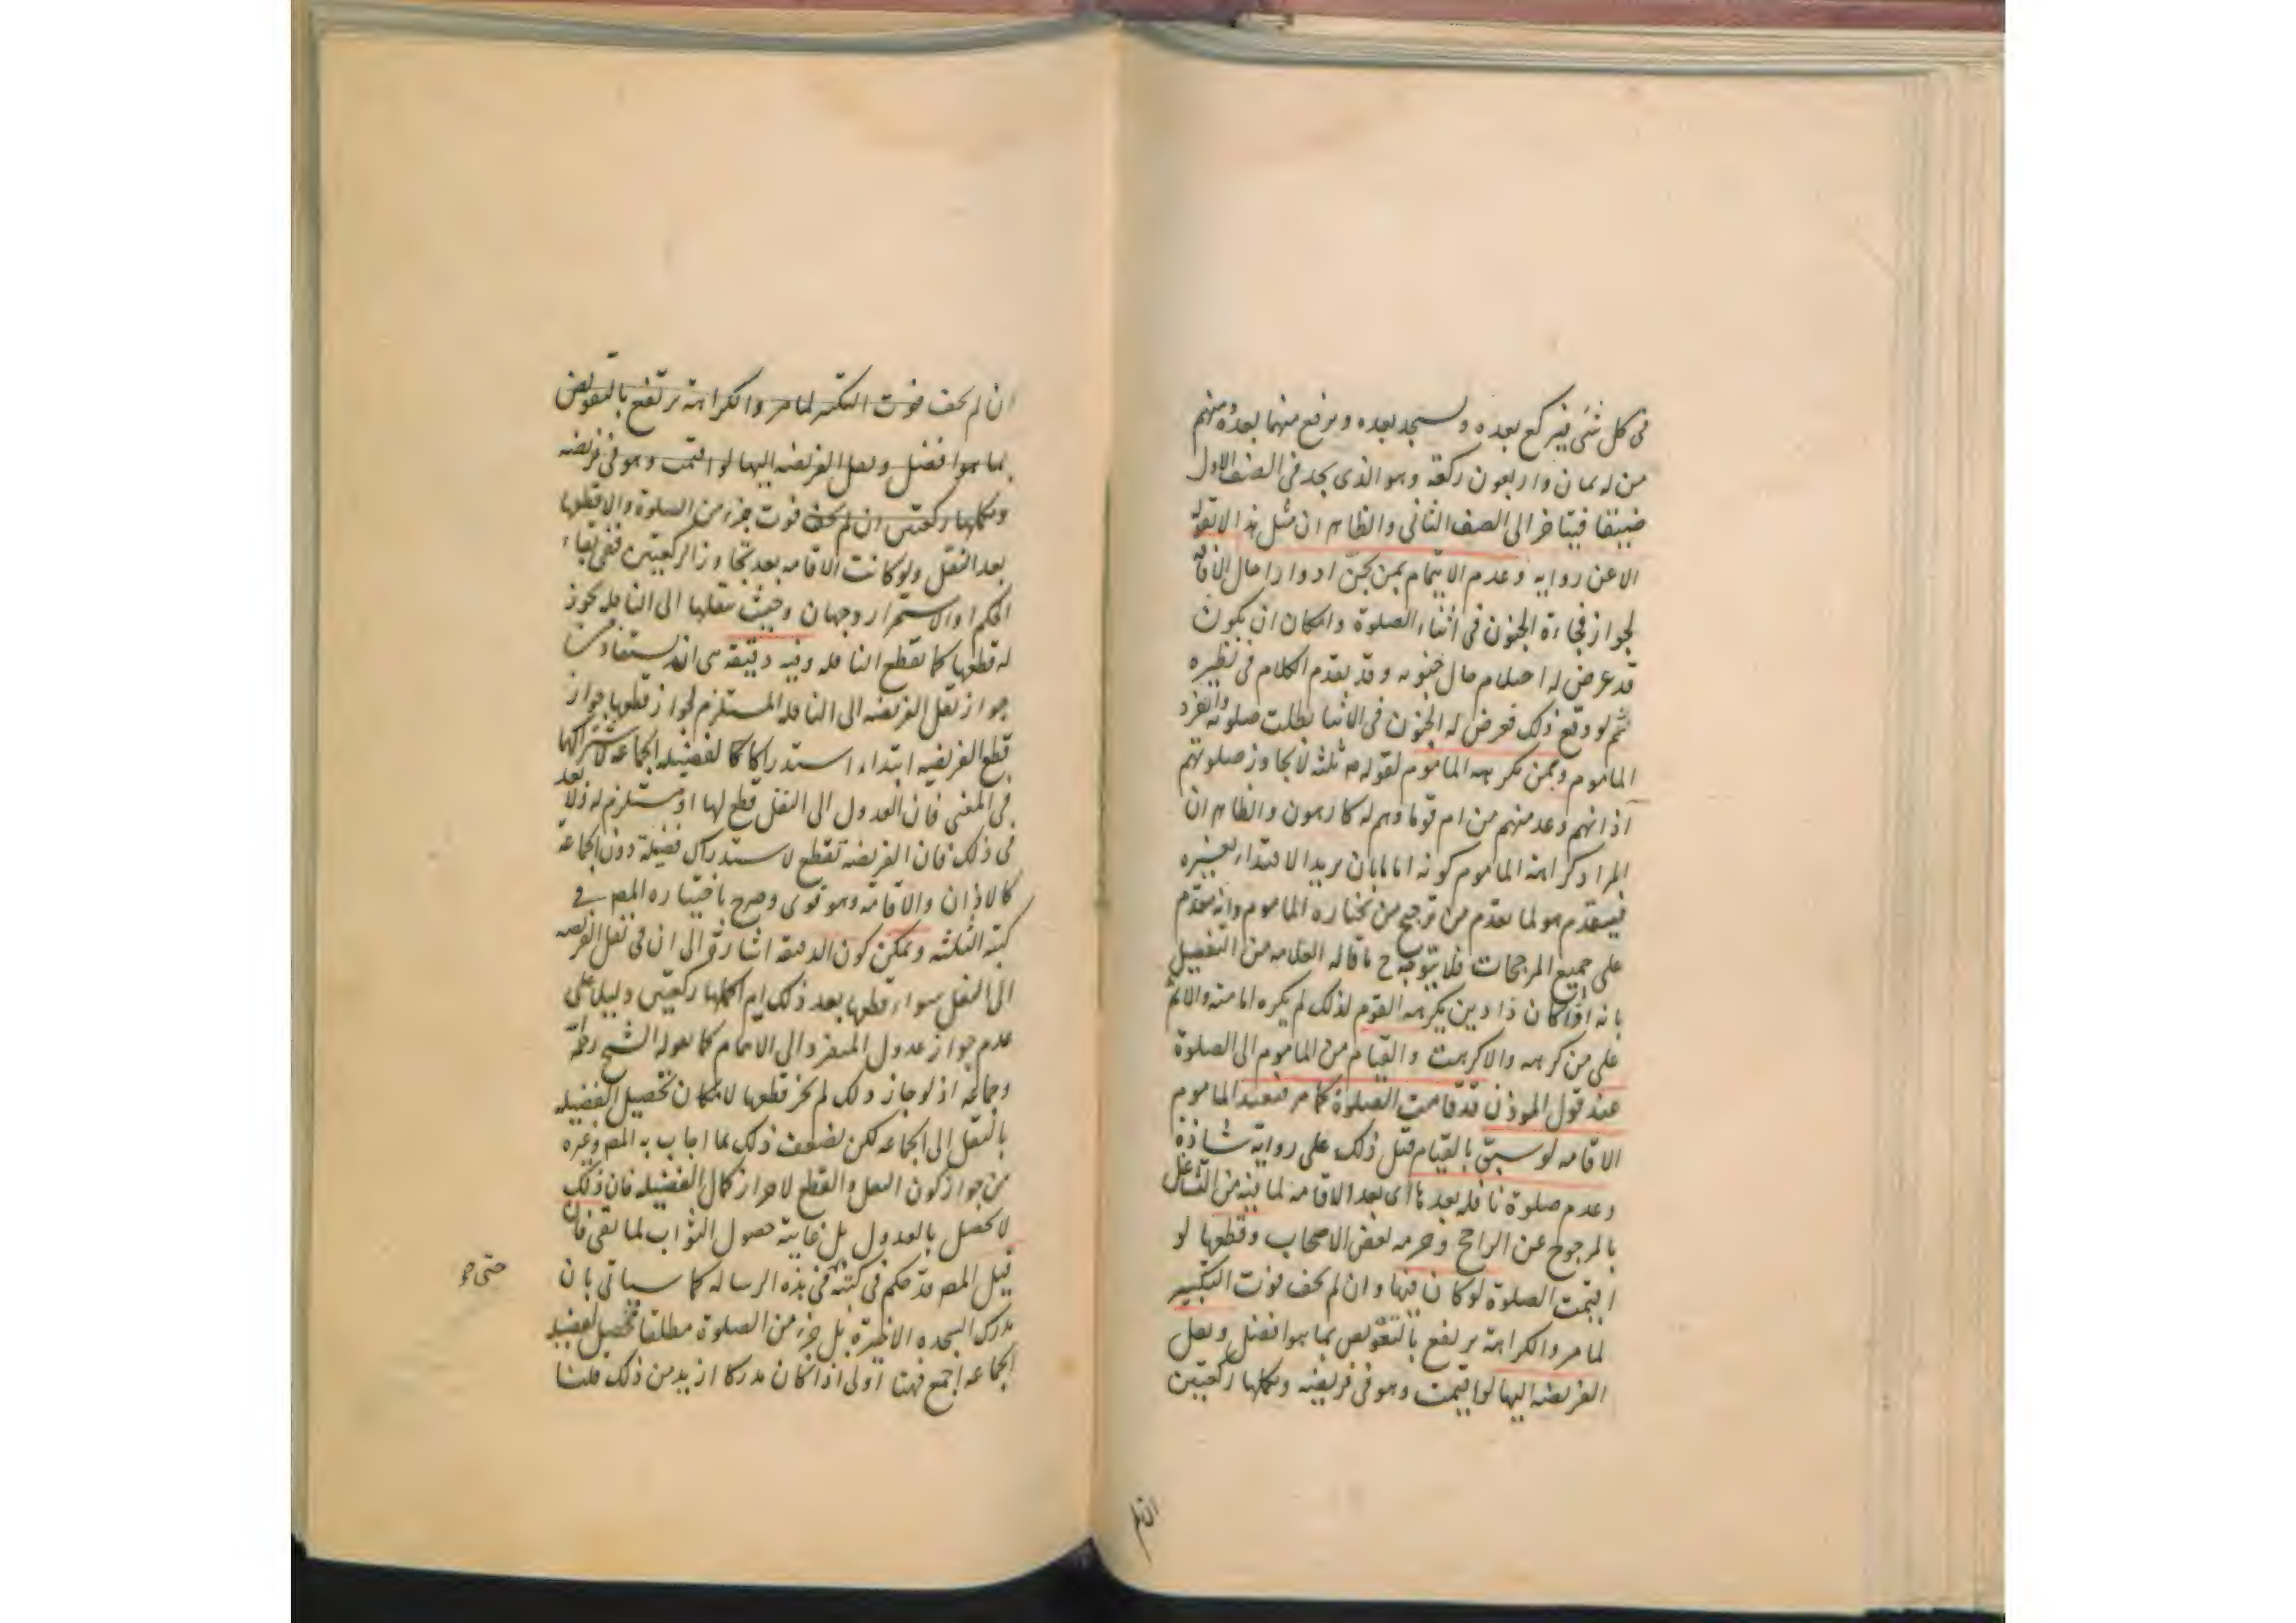 فى كل شئ فيركع بعده ويسجد بعده ويرفع منهما بعده ومنهم
من له ثمان واربعون ركعة وهو الذى يجد فى الصف الاول
ضيقا فيتاخر الى الصف الثانى والظاهر ان مثل هذا لا تقوله
الا عن رواية وعدم الايتمام بمن يجن ادوارا حال الافاقة
لجواز فجاءة الجنون فى اثناء الصلوة وامكان ان يكون
قد عرض له احتلام حال جنونه وقد تقدم الكلام فى نظيره
ثم لو وقع ذلك فعرض له الجنون فى الاثنا بطلت صلوته وانفرد
الماموم وبمن يكرهه الماموم لقوله ص ثلثه لا تجاوز صلوتهم
آذانهم وعد منهم من ام قوما وهم له كارهون والظاهر ان
المراد كراهة الماموم كونه اماما بان يريد الاقتداء بغيره
فيتقدم هو لما تقدم من ترجيح من يختاره الماموم وانه مقدم
على جميع المرجحات فلا يتوجه ح ما قاله العلامه من التفصيل
بانه اذا كان ذا دين يكرهه القوم لذلك لم يكره امامته والاثم
على من كرهه والا كرهت والقيام من الماموم الى الصلوة
عند قول الموذن قد قامت الصلوة كما مر فيعيد الماموم
الاقامه لو سبق بالقيام قبل ذلك على رواية شاذة
وعدم صلوة نافله بعدها اى بعد الاقامه لما فيه من التشاغل
بالمرجوح عن الراجح وحرمه بعض الاصحاب وقطعها لو
اقيمت الصلوة لو كان فيها وان لم يخف فوت التكبير
لما مر والكراهة يرتفع بالتعويض بما هو افضل ونقل
الفريضه اليها لو اقيمت وهو فى فريضه وتكملها ركعتين
ان لم
ان لم يخف فوت التكبير لما مر والكراهة يرتفع بالتعويض
بما هو افضل ونقل الفريضه اليها لو اقيمت وهو فى فريضه
وتكملها ركعتين ان لم يخف فوت جزء من الصلوة والا قطعها
بعد النقل ولو كانت الاقامه بعد تجاوز الركعتين ففى بقاء
الحكم او الاستمرار وجهان وحيث ينقلها الى النافله يجوز
له قطعها كما يقطع النافله وفيه دقيقه هى انه يستفاد من
جواز نقل الفريضه الى النافله المستلزم لجواز قطعها جواز
قطع الفريضه ابتداء استدراكا لفضيله الجماعه لاشتراكها
فى المعنى فان العدول الى النفل قطع لها او مستلزم له ولا بعد
فى ذلك فان الفريضة تقطع لاستدراك فضيلة دون الجماعة
كالاذان والاقامة وهو قوى وصرح باختياره المص فى
كتبه الثلثه ويمكن كون الدقيقة اشارة الى ان فى نقل الفريضه
الى النفل سواء قطعها بعد ذلك ام اكملها ركعتين دليل على
عدم جواز عدول المنفرد الى الايتمام كما يقوله الشيخ رحمه
وجماعة اذ لو جاز ذلك لم يجز قطعها لامكان تحصيل الفضيله
بالنقل الى الجماعه لكن يضعف ذلك بما اجاب به المص وغيره
من جواز كون النقل والقطع لاحراز كمال الفضيله فان ذلك
لا يحصل بالعدول بل غايته حصول الثواب لما بقى فان
قيل المص قد حكم فى كتبه فى هذه الرساله كما سياتى بان
حتى هو
مدرك السجده الاخيرة بل جزء من الصلوة مطلقا يحصل فضيله
الجماعه اجمع فهنا اولى اذا كان مدركا ازيد من ذلك قلنا